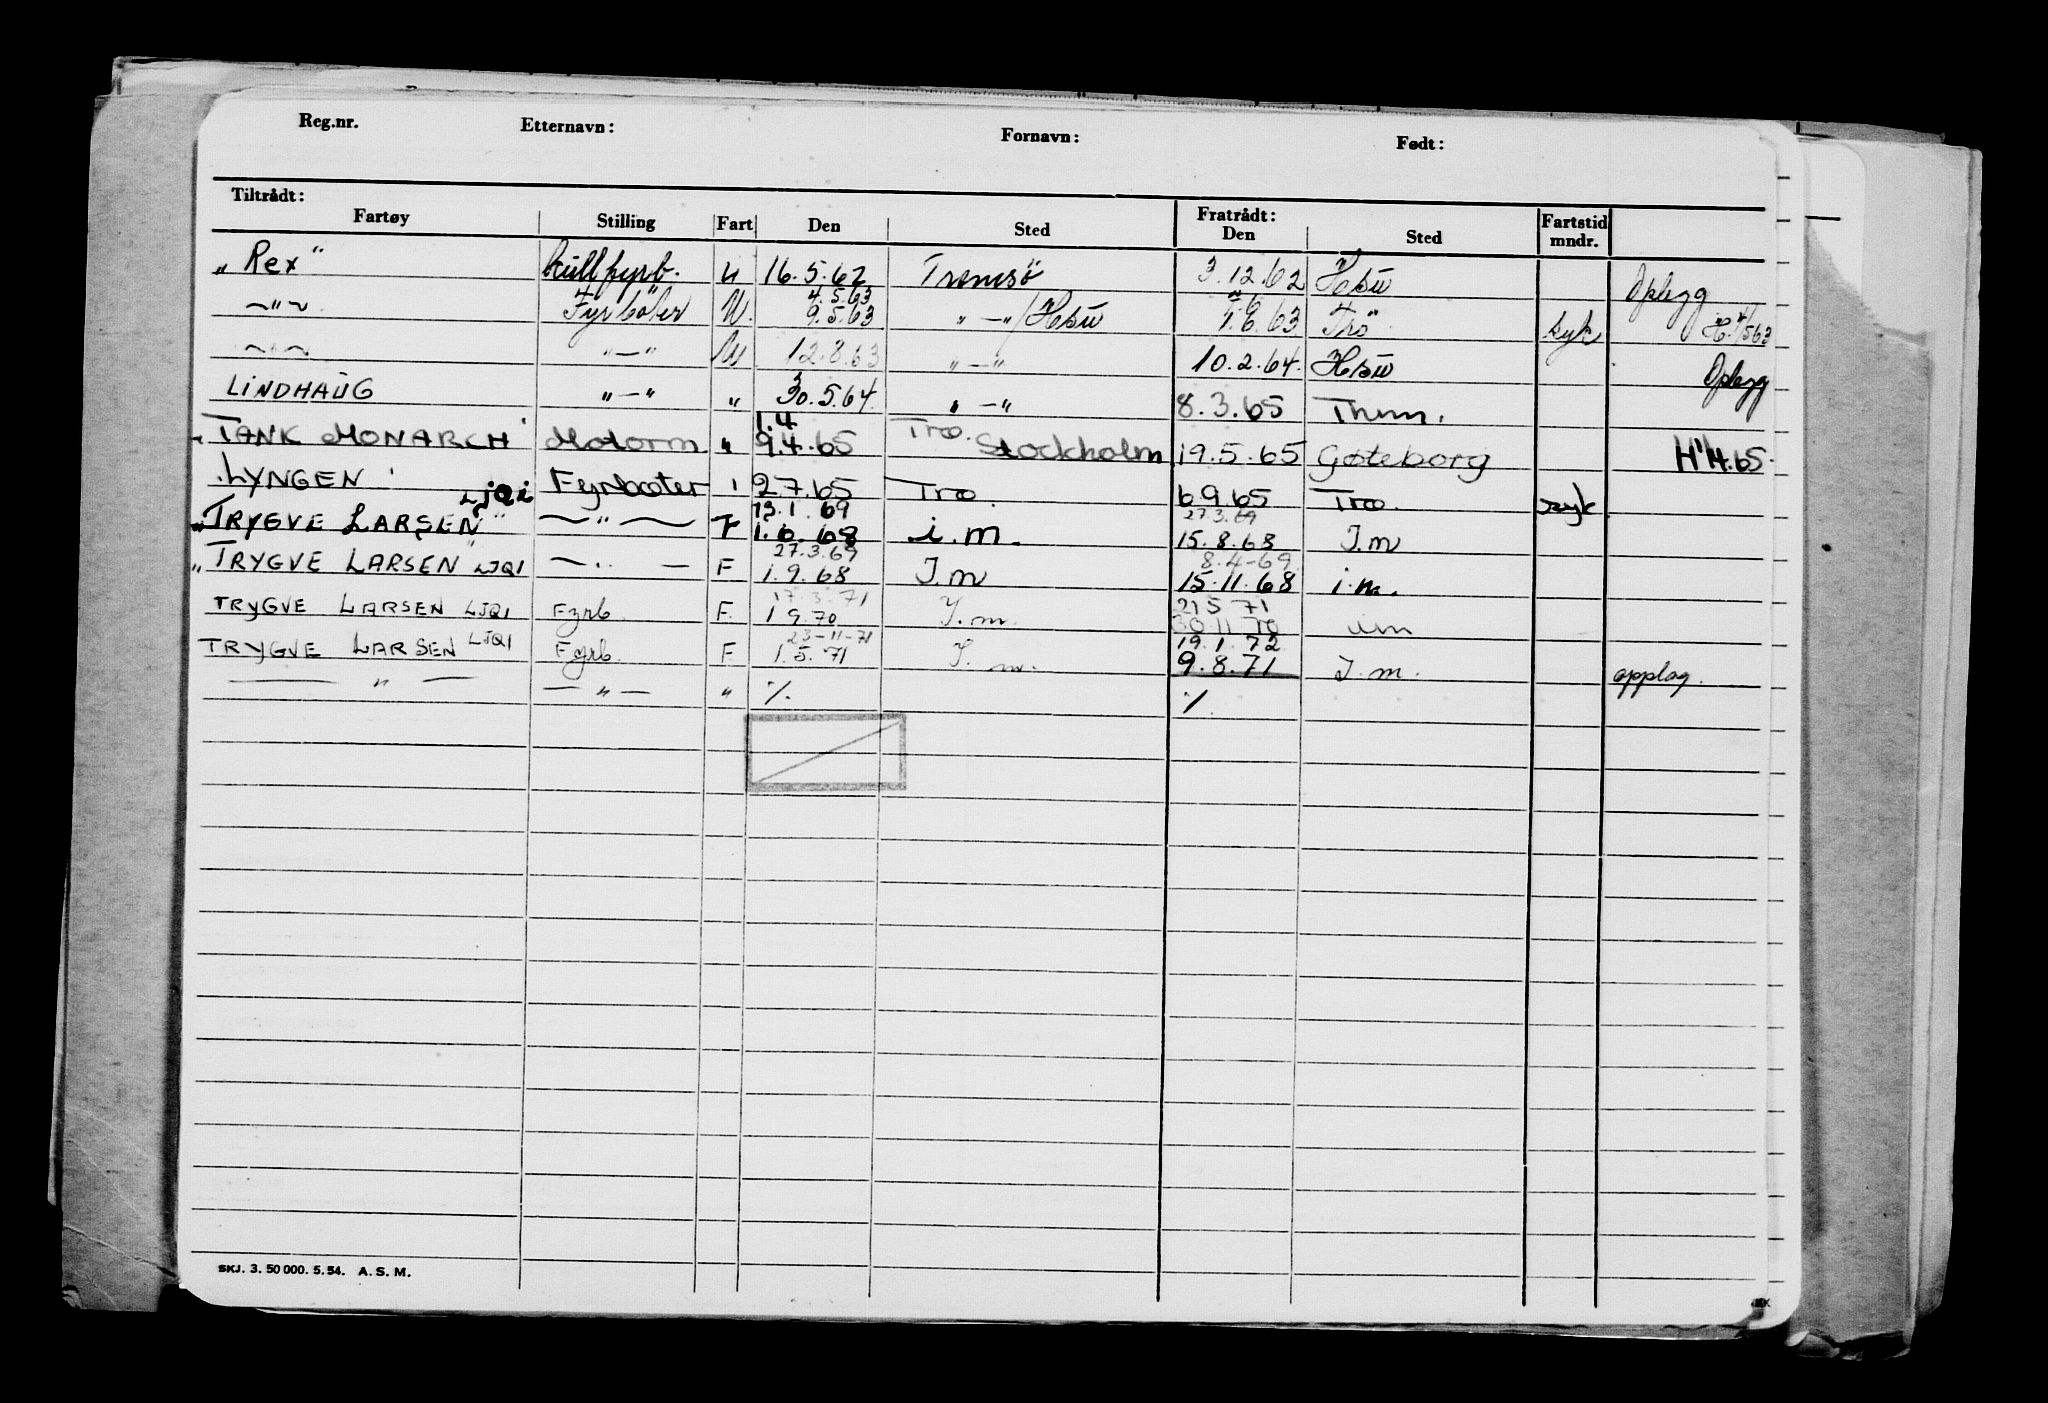 Reg.nr. Etternavn: Fornavn: Født:
Tiltrådt: Fratrådt:
Fartøy Stilling Fart Den Sted Den Sted Fartstid mndr.
„Rex" kullfyrb. U 16.5.62 Tromsö 3.12.62 Hbu Oplegg
—"— Fyrböter U. 4.5.63 9.5.63 „—"/Hbu 7.6.63 Trö syk
—"— „—" U 12.8.63 „—" 10.2.64. Hbu Oplegg
LINDHAUG „—" „ 30.5.64. „—" 8.3.65 Thm.
„TANK MONARCH" Motorm „ 1.4 9.4.65 Trø. Stockholm 19.5.65 Gøteborg H 1/4.65.
LYNGEN Fyrbøter " 2.7.65 Trø 6.9.65 Trø. syk
„TRYGVE LARSEN" LJQI —"— F 13.1.69 1.6.68 i.m. 27.3.69 15.8.68 I.m
„TRYGVE LARSEN" LJQI —"— F 27.3.69 1.9.68 I.m 8.4-69. 15.11.68 i.m.
TRYGVE LARSEN LJQI Fyrb. F. 17.3.71 1 9.70 I.m. 21 5 71 30 11 70 im
TRYGVE LARSEN LJQI Fyrb. F 23-11-71 1.5.71 I.m. 19.1.72 9.8.71 I.m. opplag.
—"— —"— " %. %.
SKJ. 3. 50 000. 5. 54. A. S. M.